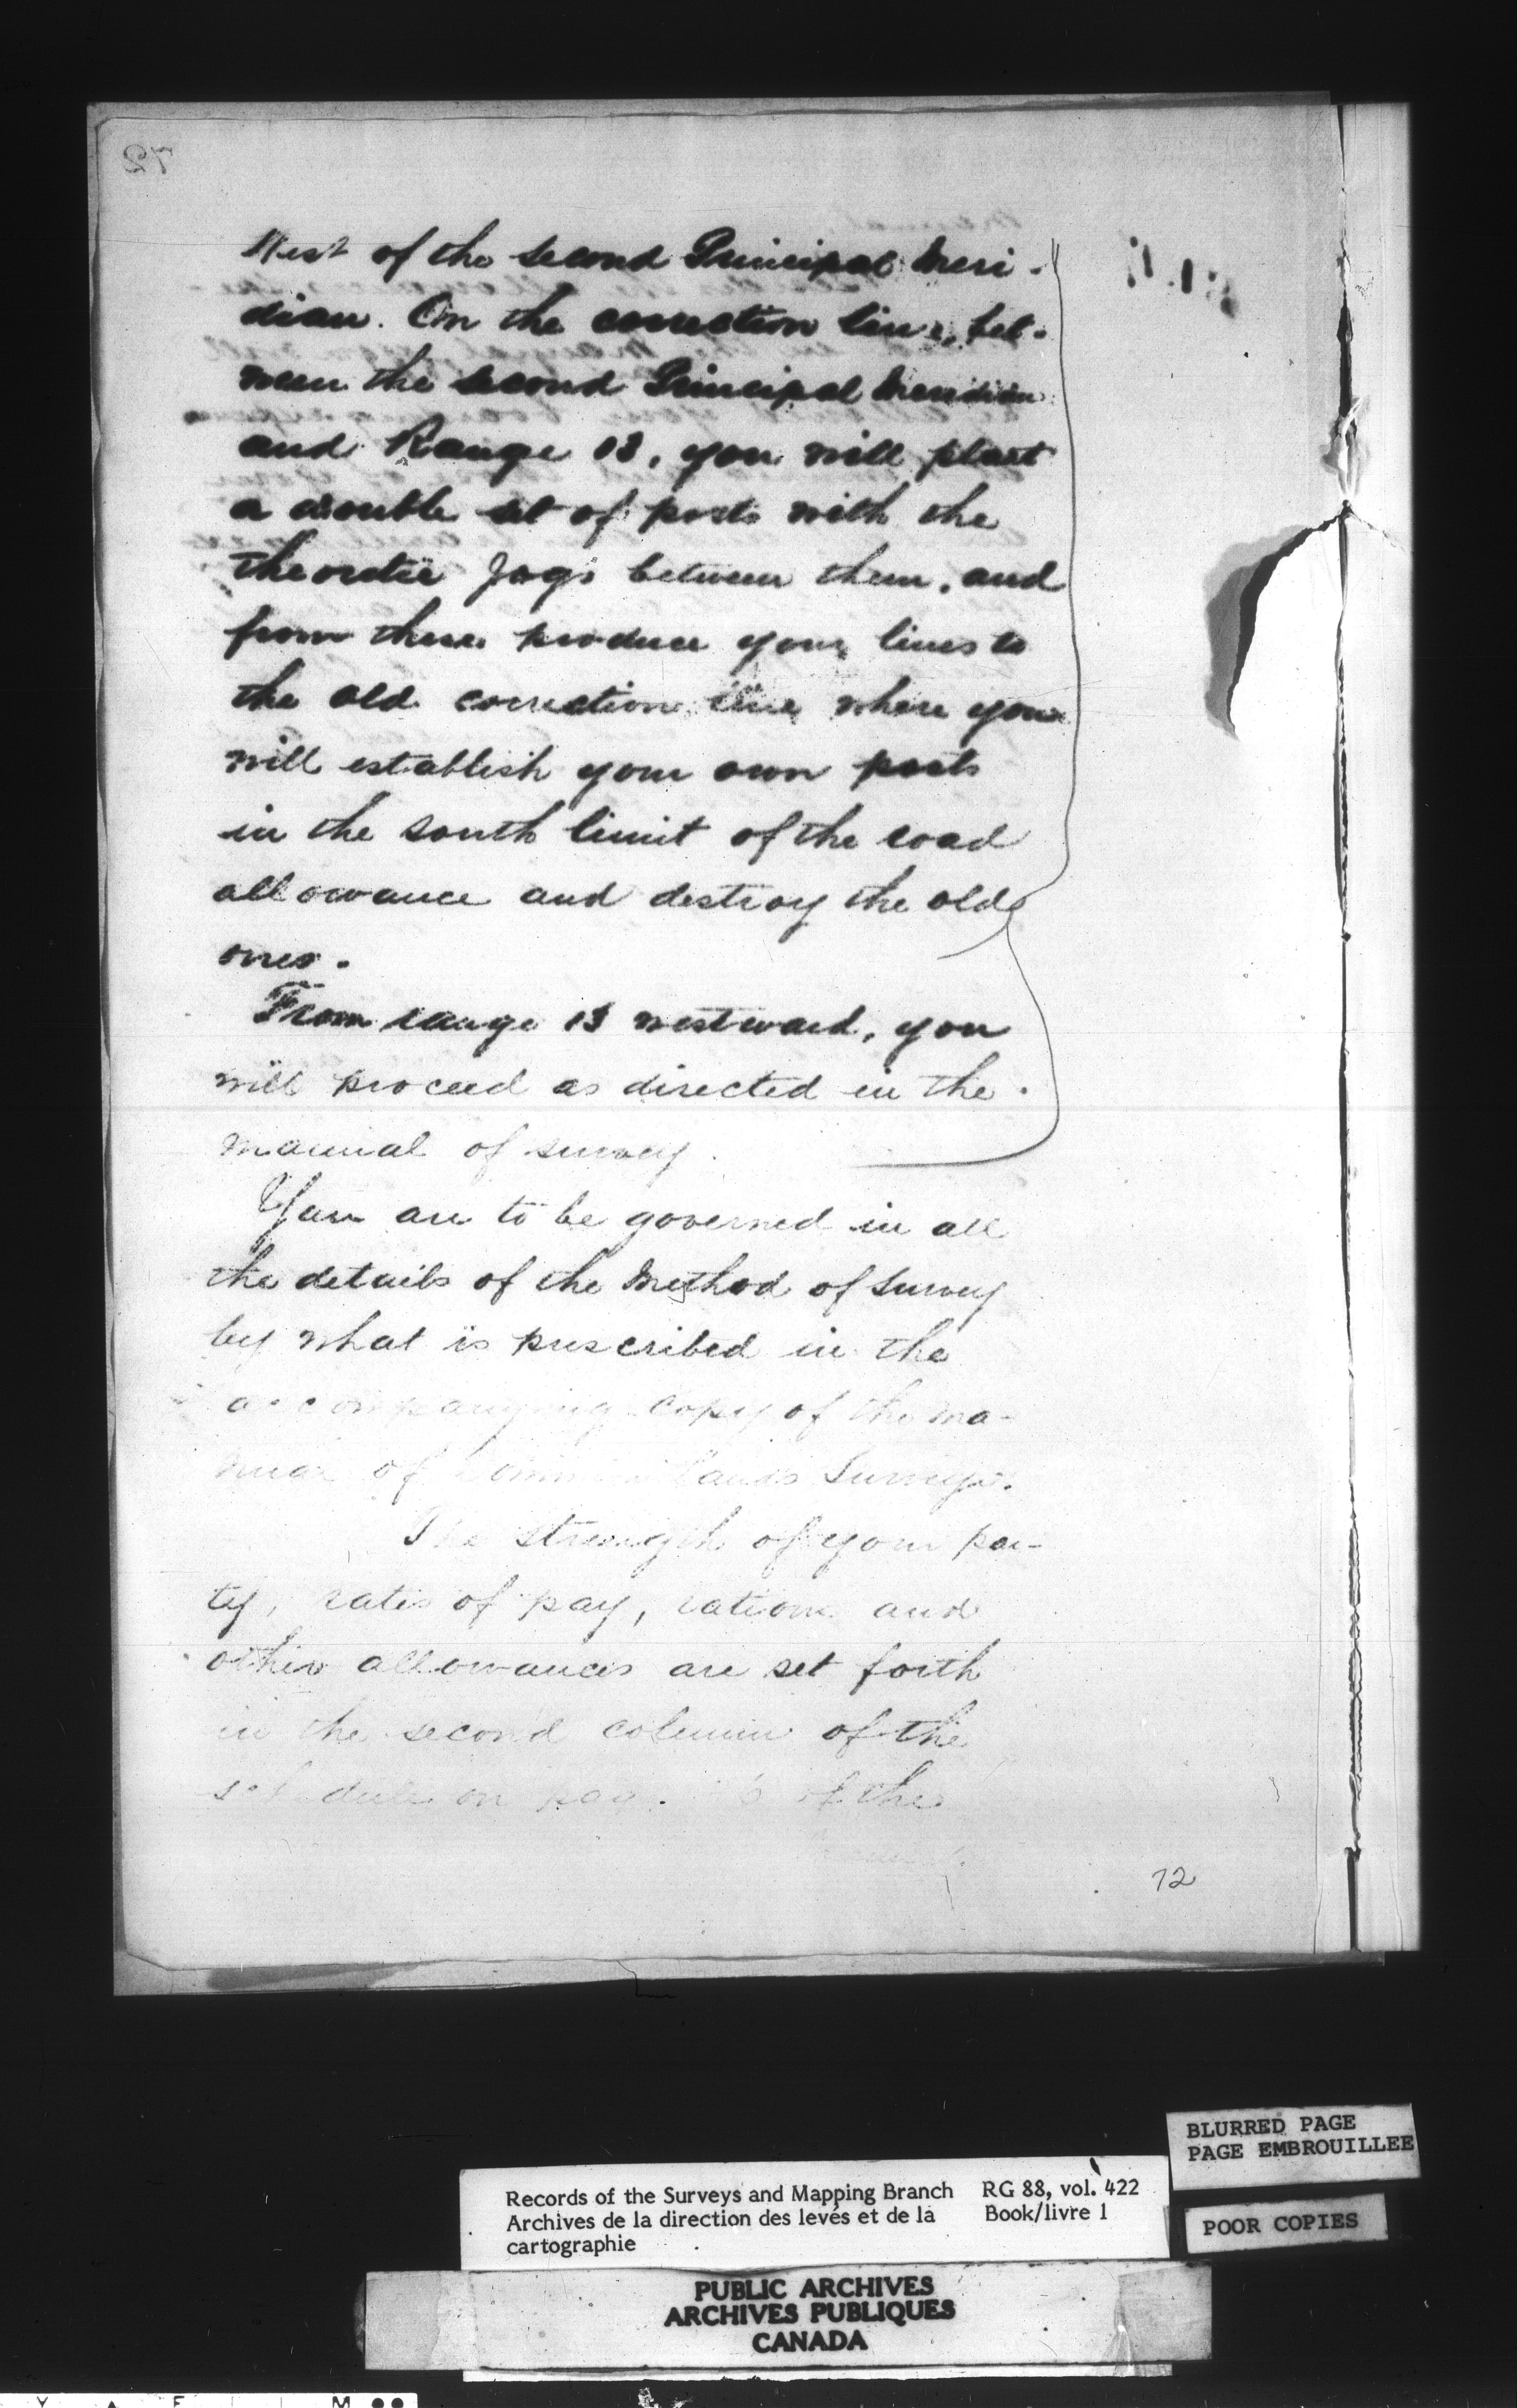 72
West of the second Principal Meri-
dian. On the correction line, bet-
ween the second Principal Meridian
and Range 13, you will plant
a double set of posts with the
theoretic Jogs between them, and
from these produce your lines to
the old correction line where you
will establish your own posts
in the south limit of the road
allowance and destroy the old
ones.
From range 13 westward, you
will proceed as directed in the
manual of survey.
You are to be governed in all
the details of the Method of Survey
by what is prescribed in the
accompanying copy of the Ma-
nual of Lands Surveys.
The strength of your par-
ty, rates of pay, rations and
other allowances are set forth
in the second column of the
schedule on page of the
72
BLURRED PAGE
PAGE EMBROUILLEE
Records of the Surveys and Mapping Branch RG 88, vol. 422
Archives de la direction des levés et de la Book/livre 1
cartographie
POOR COPIES
PUBLIC ARCHIVES
ARCHIVES PUBLIQUES
CANADA